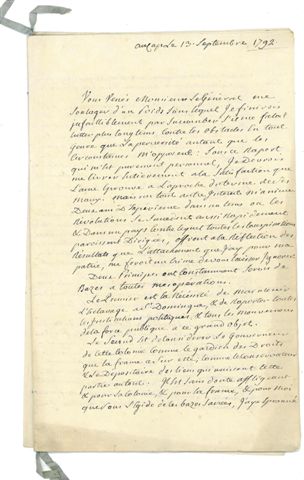 au Cap Le 13. Septembre 1792
Vous Venés Monsieur Le Général me
Soulager d'un Poids Sous lequel Je finirois
infailliblement par Succomber S'il me falait
lutter plus longtems contre les obstacles En tout
genre que La perversité autant que les
circonstances m'opposent. Sous ce Raport
qui m'est purement personnel, Je Devrois
me Livrer Entierement a la Satisfaction que
L'ame Eprouve a L'aproche du terme de ses
maux. mais un tout autre Interest m'anime
Deux ans D'Experience dans un tems ou les
Revolutions Se Succedent aussi Rapidement
& Dans un pays Sur lequel toutes les Conspirations
paroissent Dirigées, offrent a la Reflection des
Résultats que L'attachement que J'ay pour ma
patrie, me feroit un crime de vous laisser Ignorer
Deux Principes ont constamment Servi de
Bazes a toutes mes operations.
Le Premier est la Necessité de Maintenir
L'Esclavage a St Domingue, & de raporter toutes
les Institutions politiques, & tous les mouvemens
de la force publique a ce grand objet.
Le Second est de considerer Le Gouverneur
de cette Colonie comme le gardien des Droits
que la france a sur elle, comme le Conservateur
& Le Depositaire des liens qui unissent cette
partie au tout. Il est Sans doute affligeant
& pour la Colonie, & pour la france, & pour moi
que Sous l'Egide de ces bazes Sacrées, J'aye Eprouvé